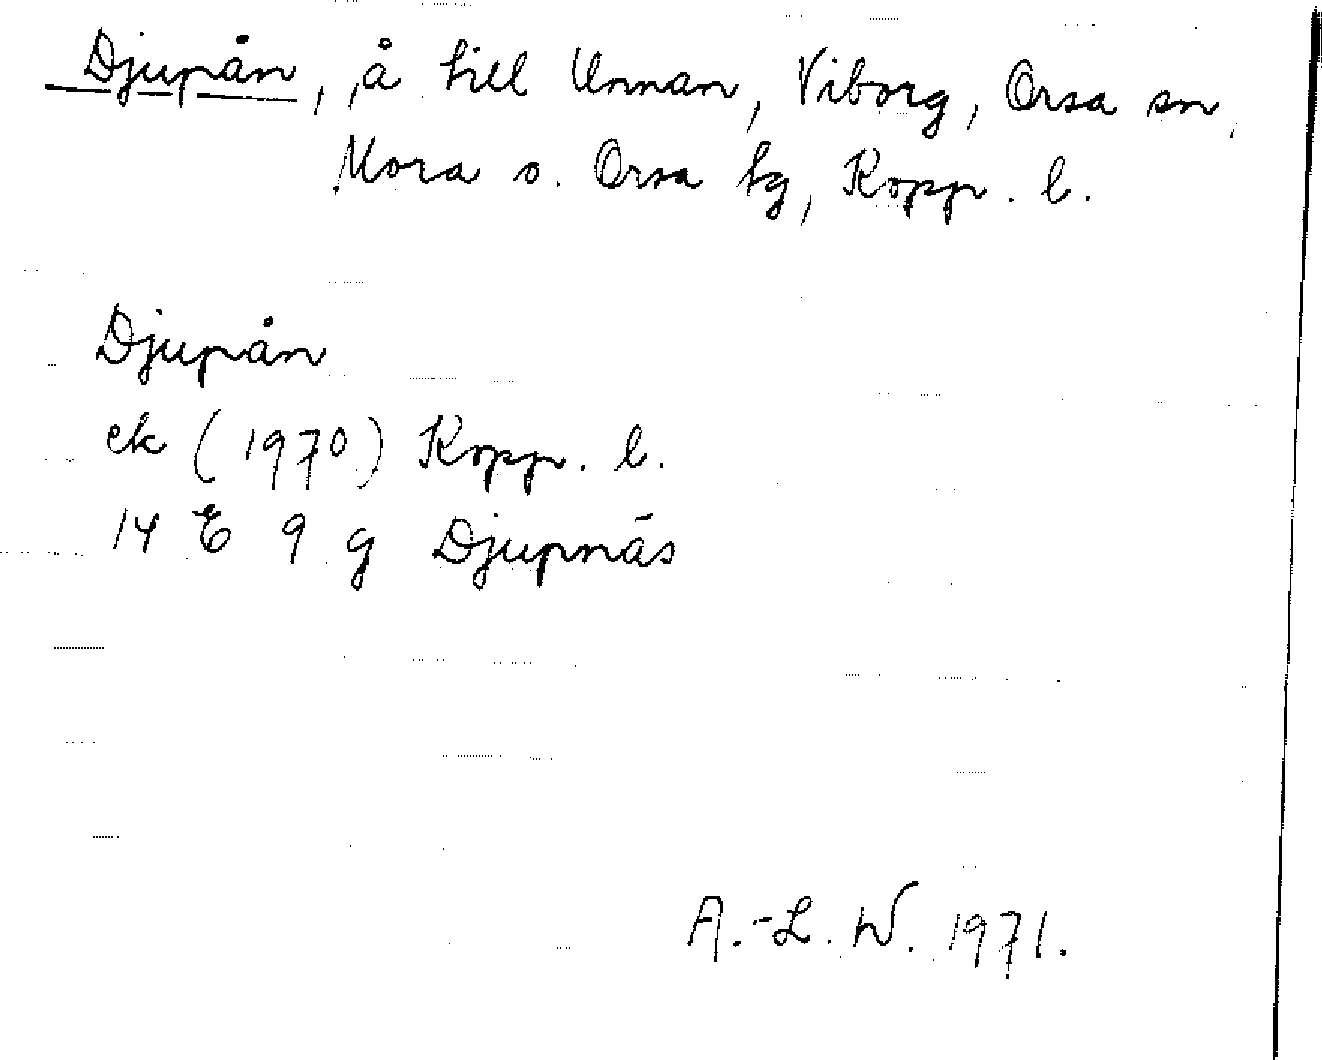 Djupån, å till Unnan, Viborg, Orsa sn,
Mora o. Orsa tg, Kopp. l.
Djupån
ek (1970) Kopp. l.
14 E 9 g Djupnäs
A.-L. W. 1971.